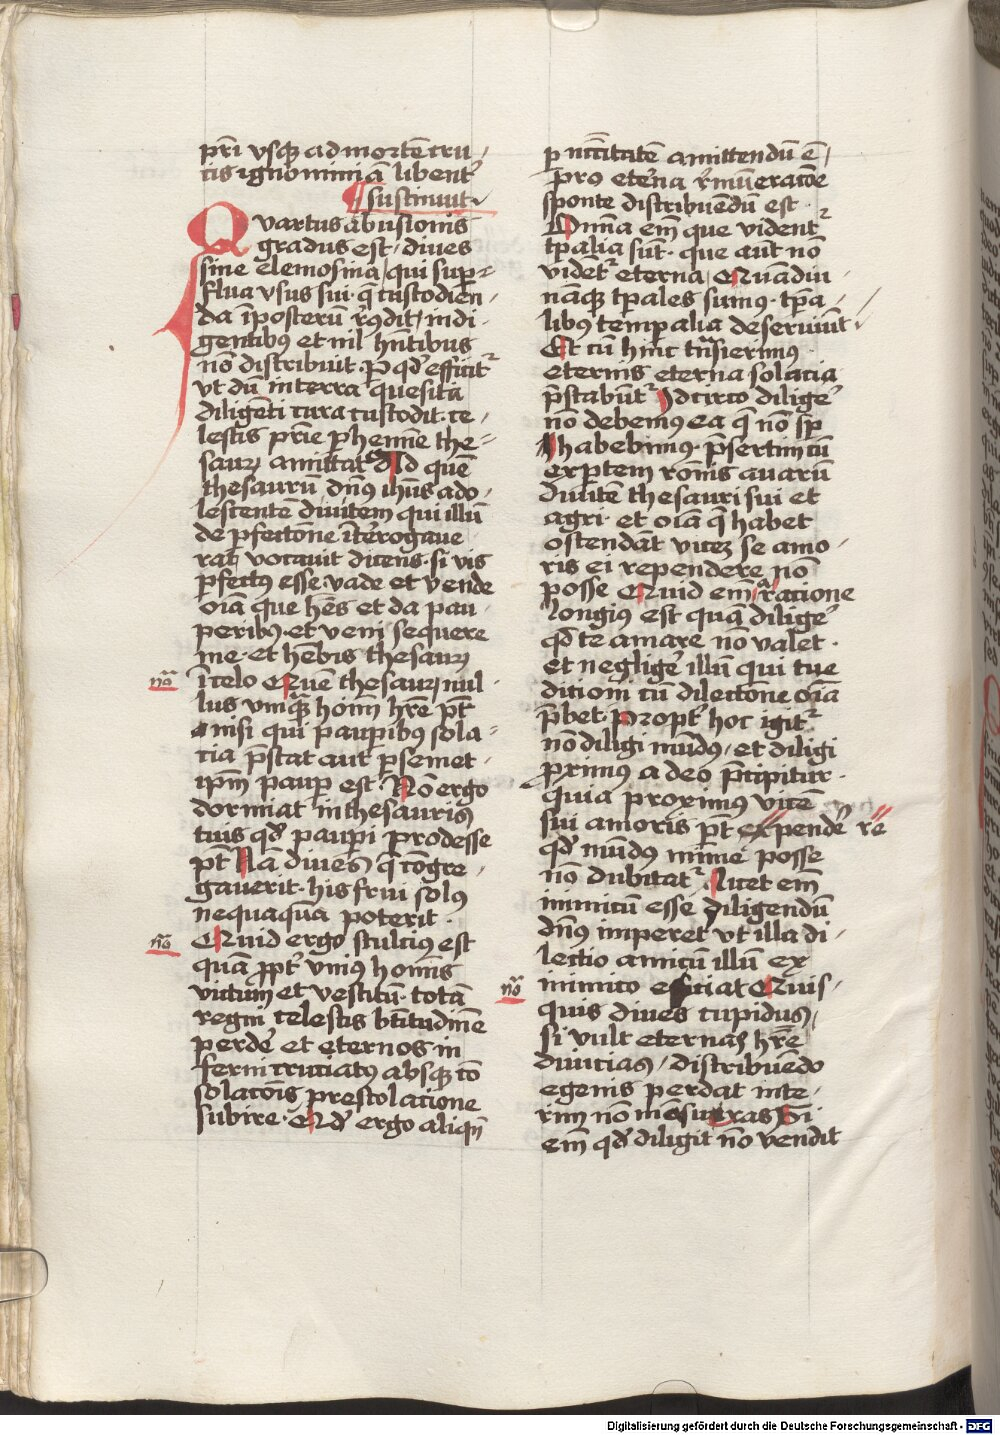 pr̄i vsqꝫ ad mortē cru/
cis ignominiā libent᷑
¶ sustinuit
Qvartus abusionis
gradus est / diues
sine elemosina / qui suꝑ=
flua vsus sui · q̄ custodien/
da ī posterū r̄9dit / indi/
gentibus et nil hn̄tibus
nō distribuit · Per qd̓ efficit᷑
vt dū in terra quesita
diligēti cura custodit · ce/
lestis pr̄ie ꝑhennē the=
saurꝫ amittat Ad quē
thesaurū dn̄s ihūs ado/
lescentē diuitem qui illū
de ꝑfectōne īterogaue/
rat vocauit dicens · si vis
ꝑfectus esse vade et vende
oīa que hēs et da pau/
peribꝰ · et veni sequere
me · et hēbis thesaurꝫ
nō
ī celo Quē thesaurꝫ nul/
lus vnqꝫ hoīm hr̄e pt̄
nisi qui pauꝑibꝰ sola=
cia p̄stat aut ꝑ semet/
ip̄m pauꝑ est · Nō ergo
dormiat in thesauris
tuis qd̓ pauꝑi prodesse
pt̄ Nā diues q̄ cōgre/
gauerit · his frui solꝰ
nequaquā poterit ·
nō
Quid ergo stulciꝰ est
quā ꝓpt̓ vniꝰ homīs
victum et vestitū · totā
regni celestis btītudinē
perde̓ et eternos in
ferni cruciatꝰ absqꝫ cō
solacōis prestolatione
subire · Qd̓ ergo aliqn̄
ꝑ nccītatē amittendū ē /
pro9 ete̓na r̄munerac̄oe
sponte distribuēdū est ·
Omīa em̄ que vident᷑
tp̄alia sūt · que aūt nō
vidēt᷑ eterna Quādiu
nāqꝫ tp̄ales sumꝰ · tp̄a/
libꝰ temꝑalia deseruiūt ·
Et cū hinc tn̄sierimꝰ
eternis eterna solacia
p̄stabūt᷑ Idcirco dilige̓
nō debemꝰ ea q̄ nō sp̄
habebimꝰ · p̄sertim cū
exꝑtem rōnis auarū
diuitē thesauri sui et
agri · et oīa q̄ habet
ostendāt vicꝫ se amo/
ris ei rependere nō
posse Quid em̄ a ratione
longius est quā dilige̓
qd̓ te amare nō valet ·
et neglige̓ illū qui tue
dicioni cū dilectōne oīa
p̄bet · Propt̓ hoc igit᷑
nō diligi mūdꝰ / et diligi
ꝓximꝰ a deo p̄cipitur ·
quia proximꝰ vicē
sui amoris pt̄ expende̓ re
qd̓ mūdꝰ mīme posse
nō dubitat᷑ Licet em̄
inimicū esse diligendū
dn̄s imperet vt illa di/
lectio amicū illū ex
nō
inimico efficiat Quis/
quis diues cupidus /
si vult eternas hr̄e
diuicias / distribuēdo
egenis perdat inte/
rim nō mēsuras Si
em̄ qd̓ diligit nō vendit
Digitalisierung gefördert durch die Deutsche Forschungsgemeinschaft - DFG